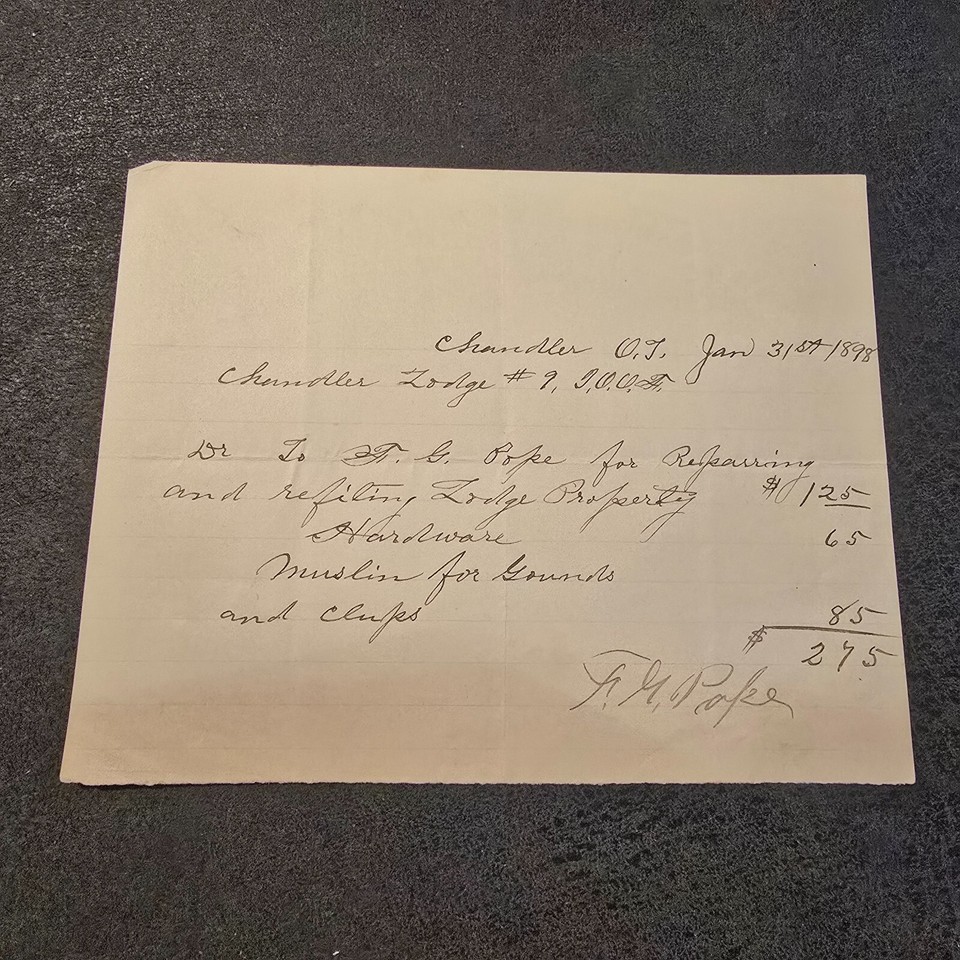 Chandler O.T. Jan 31st 1898
Chandler Lodge # 9, I.O.O.F.
Dr To F. G. Pope for Reparring
and refiting Lodge Property $ 125
Hardware 65
Muslin for Gounds
and Clups 85
$ 275
F. G. Pope